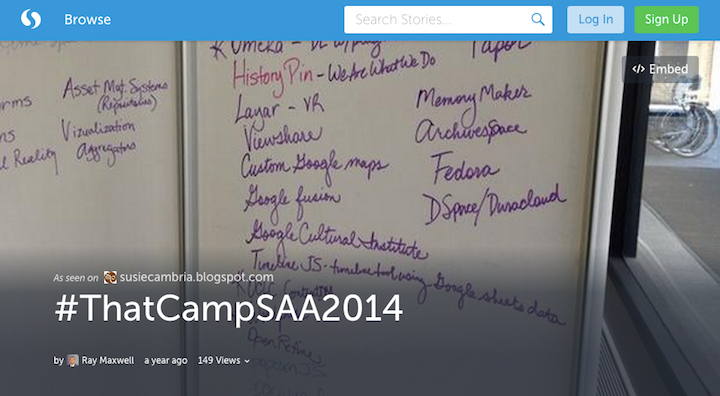 Browse
Search Stories...
Log In
Sign Up
</> Embed
Asset Mgt. Systems
(Repositories)
Vizualization
Aggregators
rms
ns
l Reality
Omeka -
HistoryPin - We Are What We Do
Layar - VR
Viewshare
Custom Google maps
Google fusion
Google Cultural Institute
Timeline JS - timeline tool using Google sheets data
OpenRefine
Tapor
Memory Maker
Archivesspace
Fedora
DSpace/Duracloud
As seen on susiecambria.blogspot.com
#ThatCampSAA2014
by Ray Maxwell a year ago 149 Views